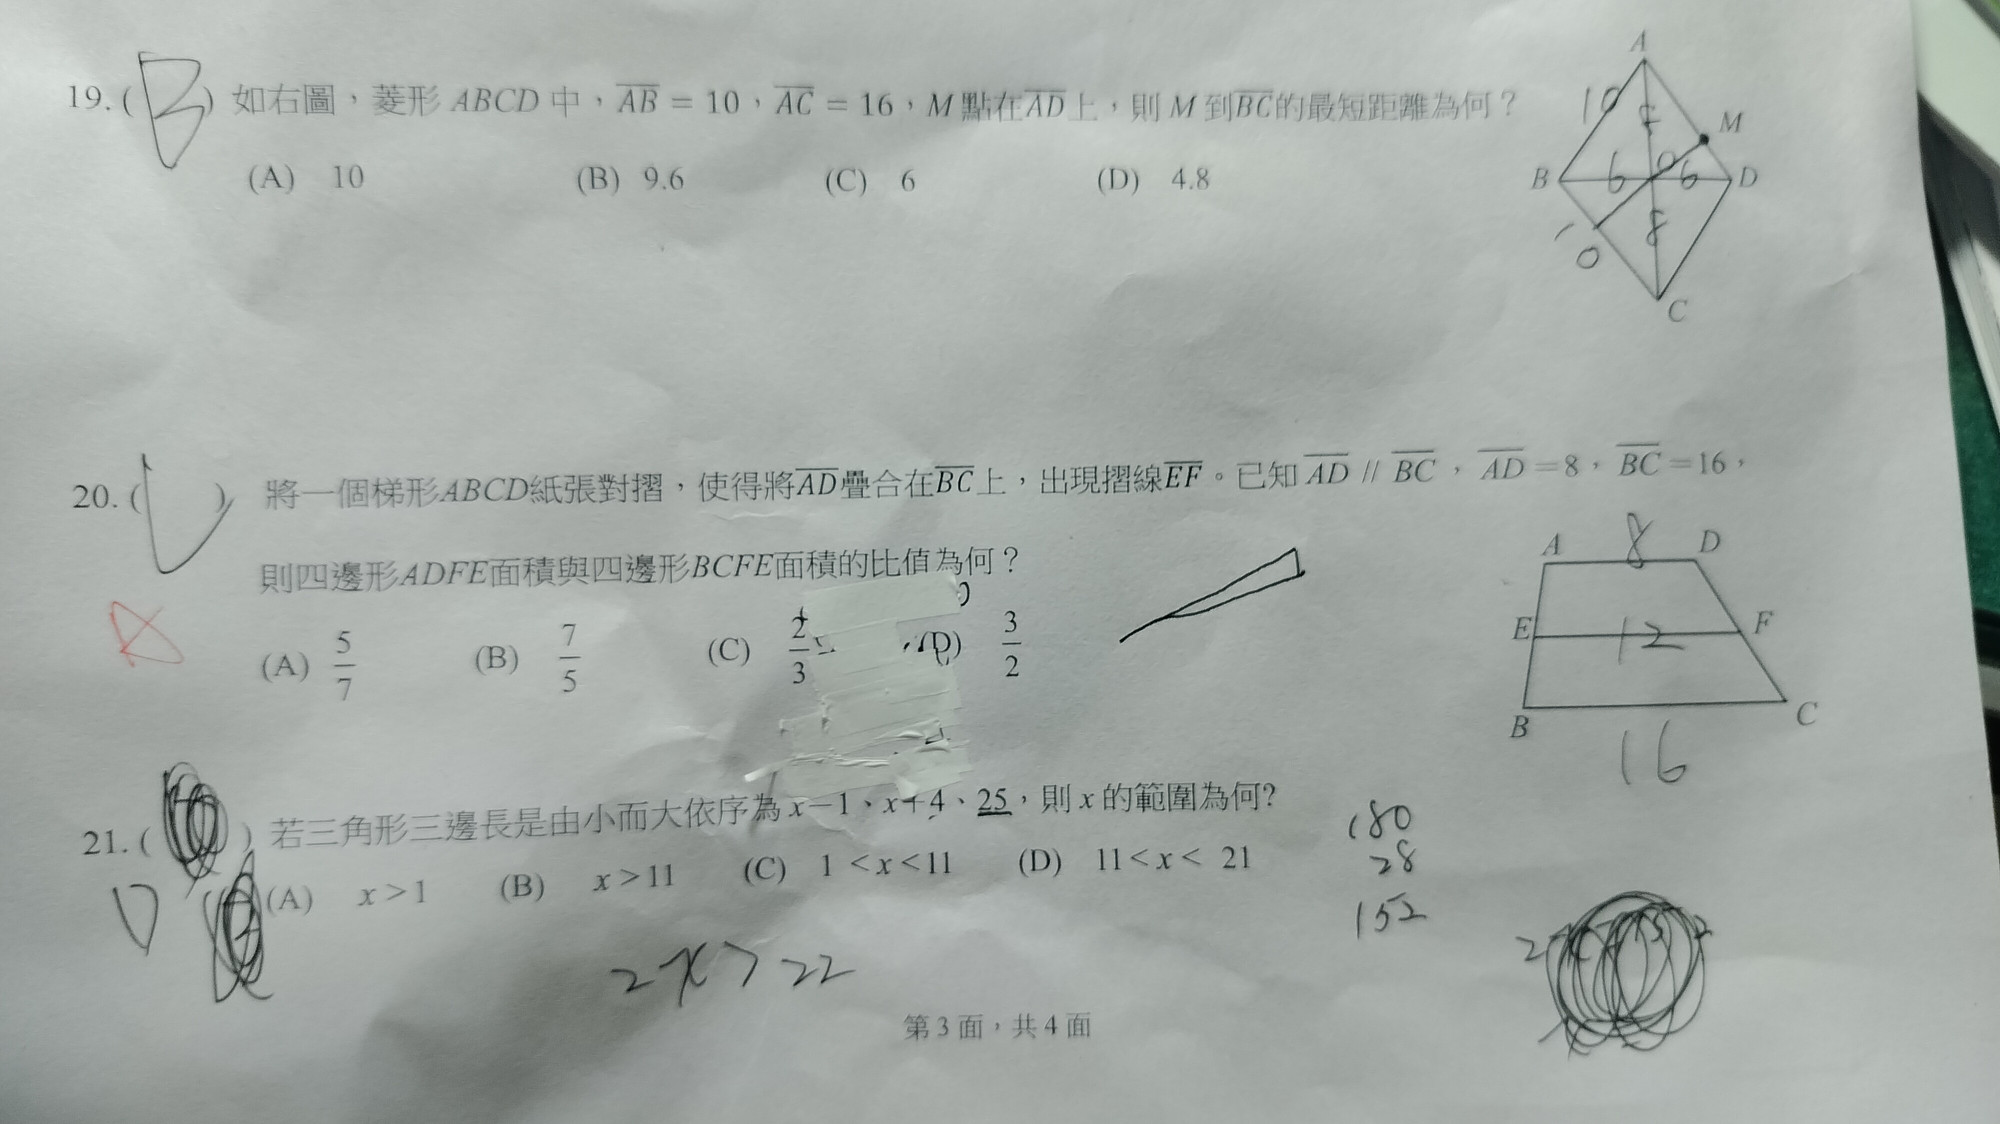 19. ( B ) 如右圖，菱形 ABCD 中，AB = 10，AC = 16，M 點在AD上，則 M 到BC的最短距離為何？
(A) 10 (B) 9.6 (C) 6 (D) 4.8
A
10
M
B
6
6
D
8
10
C
20. ( ) 將一個梯形ABCD紙張對摺，使得將AD疊合在BC上，出現摺線EF。已知 AD // BC，AD=8，BC=16，
則四邊形ADFE面積與四邊形BCFE面積的比值為何？
(A) 5/7 (B) 7/5 (C) 2/3 (D) 3/2
A
8
D
E
12
F
B
16
C
21. ( ) 若三角形三邊長是由小而大依序為 x−1、x+4、25，則 x 的範圍為何?
D
(A) x>1 (B) x>11 (C) 1<x<11 (D) 11<x< 21
180
28
152
2x>22
第 3 面，共 4 面